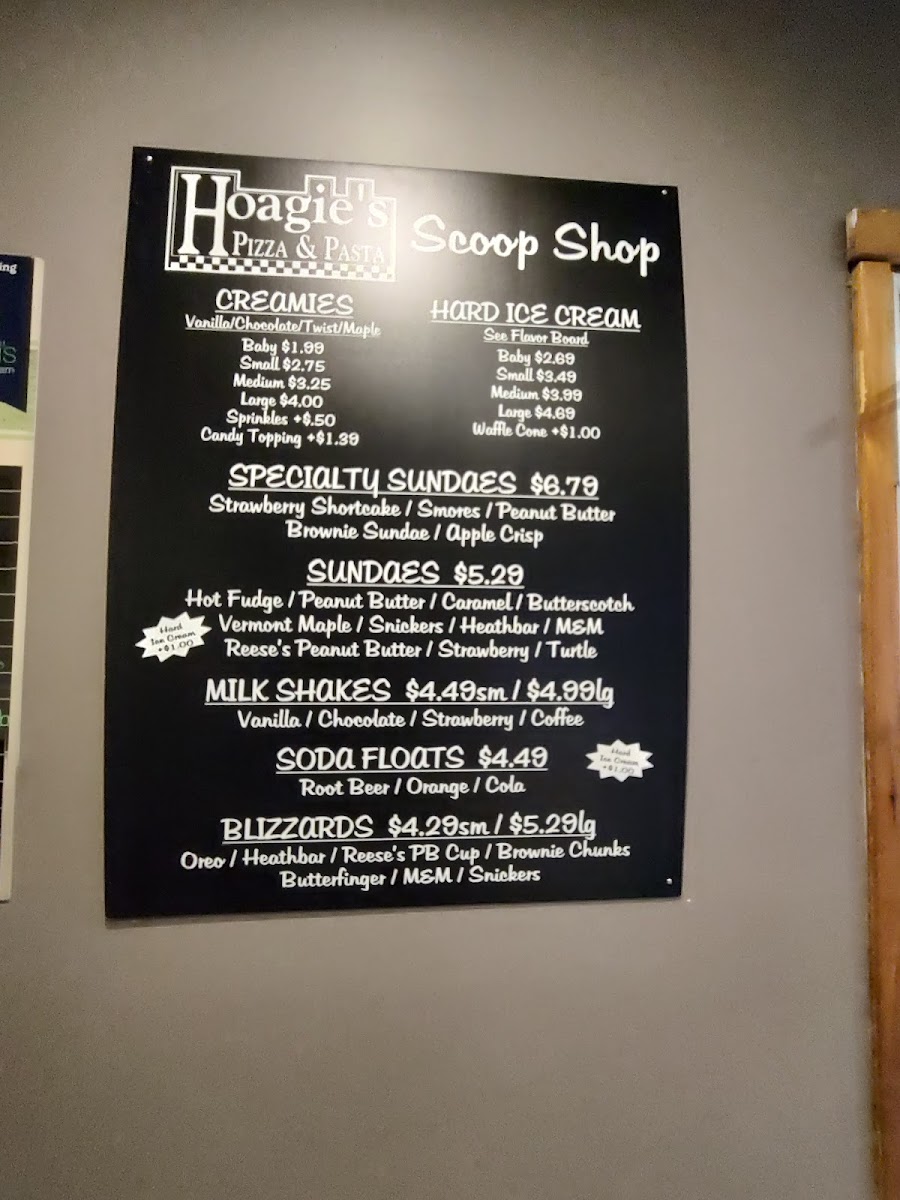 Hoagie's
PIZZA & PASTA
Scoop Shop
CREAMIES
Vanilla/Chocolate/Twist/Maple
Baby $1.99
Small $2.75
Medium $3.25
Large $4.00
Sprinkles +$.50
Candy Topping +$1.39
HARD ICE CREAM
See Flavor Board
Baby $2.69
Small $3.49
Medium $3.99
Large $4.69
Waffle Cone +$1.00
SPECIALTY SUNDAES $6.79
Strawberry Shortcake / Smores / Peanut Butter
Brownie Sundae / Apple Crisp
SUNDAES $5.29
Hot Fudge / Peanut Butter / Caramel / Butterscotch
Vermont Maple / Snickers / Heathbar / M&M
Reese's Peanut Butter / Strawberry / Turtle
Hard
Ice Cream
+$1.00
MILK SHAKES $4.49sm / $4.99lg
Vanilla / Chocolate / Strawberry / Coffee
SODA FLOATS $4.49
Root Beer / Orange / Cola
Hard
Ice Cream
+$1.00
BLIZZARDS $4.29sm / $5.29lg
Oreo / Heathbar / Reese's PB Cup / Brownie Chunks
Butterfinger / M&M / Snickers